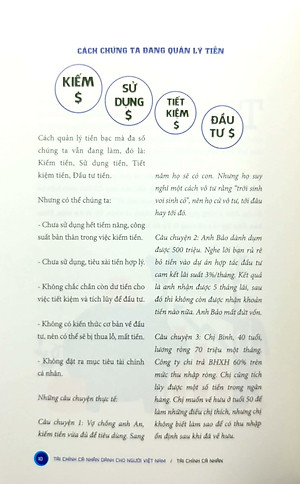 CÁCH CHÚNG TA ĐANG QUẢN LÝ TIỀN
KIẾM
$
SỬ
DỤNG
$
TIẾT
KIỆM
$
ĐẦU
TƯ $
Cách quản lý tiền bạc mà đa số
chúng ta vẫn đang làm, đó là:
Kiếm tiền, Sử dụng tiền, Tiết
kiệm tiền, Đầu tư tiền.
Nhưng có thể chúng ta:
- Chưa sử dụng hết tiềm năng, công
suất bản thân trong việc kiếm tiền.
- Chưa sử dụng, tiêu xài tiền hợp lý.
- Không chắc chắn còn dư tiền cho
việc tiết kiệm và tích lũy để đầu tư.
- Không có kiến thức cơ bản về đầu
tư, nên có thể sẽ bị thua lỗ, mất tiền.
- Không đặt ra mục tiêu tài chính
cá nhân.
Những câu chuyện thực tế:
Câu chuyện 1: Vợ chồng anh An,
kiếm tiền vừa đủ để tiêu dùng. Sang
năm họ sẽ có con. Nhưng họ suy
nghĩ một cách vô tư rằng "trời sinh
voi sinh cỏ", nên họ cứ vô tư, tới đâu
hay tới đó.
Câu chuyện 2: Anh Bảo dành dụm
được 500 triệu. Nghe lời bạn rủ rê
bỏ tiền vào dự án hợp tác đầu tư
cam kết lãi suất 3%/tháng. Kết quả
là anh nhận được 5 tháng lãi, sau
đó thì không còn được nhận khoản
tiền nào nữa. Anh Bảo mất đứt vốn.
Câu chuyện 3: Chị Bình, 40 tuổi,
lương ròng 70 triệu một tháng.
Công ty chi trả BHXH 60% trên
mức thu nhập ròng. Chị cũng tích
lũy được một số tiền trong ngân
hàng. Chị muốn về hưu ở tuổi 50 để
làm những điều chị thích, nhưng chị
không biết làm sao để có thu nhập
ổn định sau khi đã về hưu.
10 TÀI CHÍNH CÁ NHÂN DÀNH CHO NGƯỜI VIỆT NAM / TÀI CHÍNH CÁ NHÂN